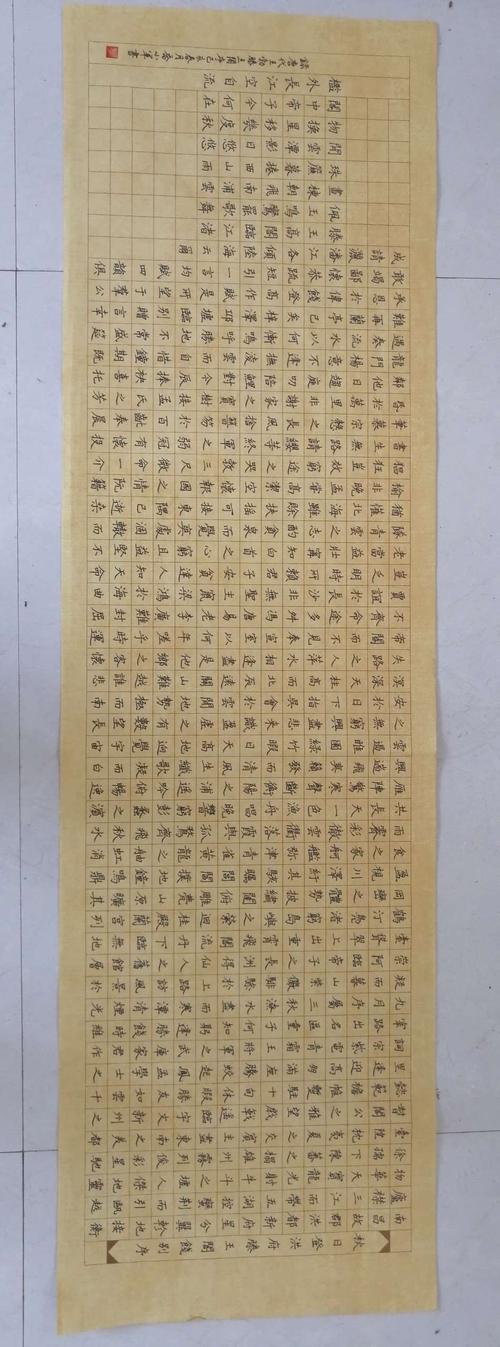 秋日登洪府滕王閣餞別序
南昌故郡洪都新府星分翼軫地接衡
廬襟三江而帶五湖控蠻荊而引甌越
物華天寶龍光射牛斗之墟人傑地靈
徐孺下陳蕃之榻雄州霧列俊彩星馳
臺隍枕夷夏之交賓主盡東南之美都
督閻公之雅望棨戟遙臨宇文新州之
懿範襜帷暫駐十旬休暇勝友如雲千
里逢迎高朋滿座騰蛟起鳳孟學士之
詞宗紫電青霜王將軍之武庫家君作
宰路出名區童子何知躬逢勝餞時維
九月序屬三秋潦水盡而寒潭清煙光
凝而暮山紫儼驂騑於上路訪風景於
崇阿臨帝子之長洲得仙人之舊館層
巒聳翠上出重霄飛閣流丹下臨無地
鶴汀鳧渚窮島嶼之縈迴桂殿蘭宮列
岡巒之體勢披繡闥俯雕甍山原曠其
盈視川澤紆其駭矚閭閻撲地鐘鳴鼎
食之家舸艦彌津青雀黃龍之舳虹消
雨霽彩徹雲衢落霞與孤鶩齊飛秋水
共長天一色漁舟唱晚響窮彭蠡之濱
雁陣驚寒聲斷衡陽之浦遙吟俯暢逸
興遄飛爽籟發而清風生纖歌凝而白
雲遏極娛遊於暇日天高地迥覺宇宙
之無窮興盡悲來識盈虛之有數望長
安於日下指吳會於雲間地勢極而南
溟深天柱高而北辰遠關山難越誰悲
失路之人萍水相逢盡是他鄉之客懷
帝閽而不見奉宣室以何年嗟乎時運
不齊命途多舛馮唐易老李廣難封屈
賈誼於長沙非無聖主竄梁鴻於海曲
豈乏明時所賴君子安貧達人知命
老當益壯寧移白首之心窮且益堅不
墜青雲之志酌貪泉而覺爽處涸轍而
猶懽北海雖賒扶搖可接東隅已逝桑
榆非晚孟嘗高潔空懷報國之情阮籍
猖狂豈效窮途之哭勃三尺微命一介
書生無路請纓等終軍之弱冠有懷投
筆慕宗愨之長風捨簪笏於百齡奉晨
昏於萬里非謝家之寶樹接孟氏之芳
鄰他日趨庭叨陪鯉對今茲捧袂喜托
龍門楊意不逢撫凌雲而自惜鍾期既
遇奏流水以何慚嗚呼勝地不常盛筵
難再蘭亭已矣梓澤丘墟臨別贈言幸
承恩於偉餞登高作賦是所望於羣公
敢竭鄙懷恭疏短引一言均賦四韻俱
成請灑潘江各傾陸海云爾
滕王高閣臨江渚
佩玉鳴鸞罷歌舞
畫棟朝飛南浦雲
珠簾暮捲西山雨
閒雲潭影日悠悠
物換星移幾度秋
閣中帝子今何在
檻外長江空自流
錄唐代王勃滕王閣序己亥春月喬小軍書